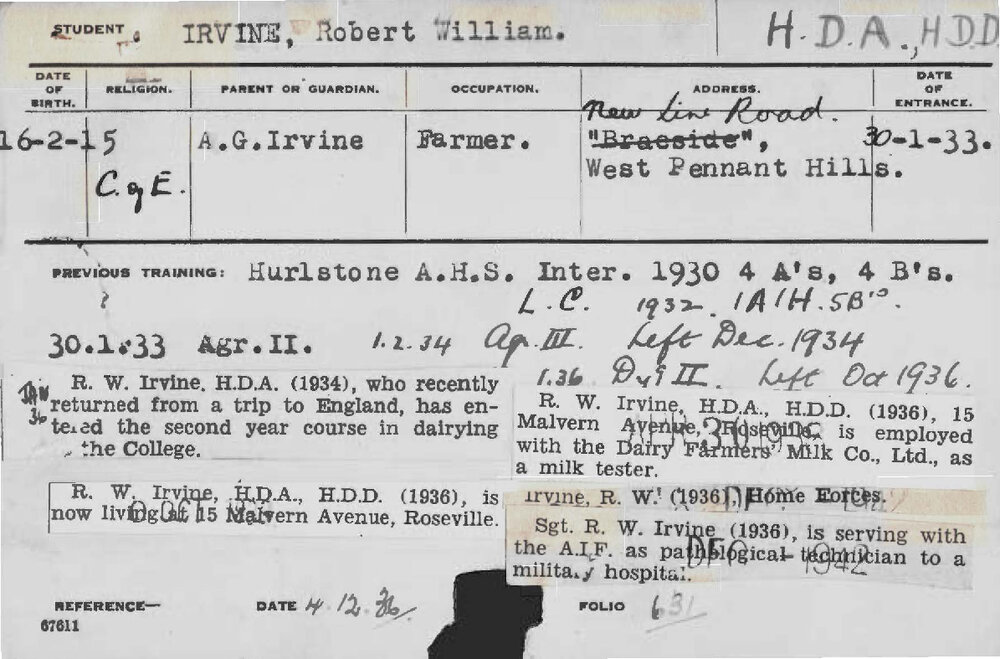 STUDENT. IRVINE, Robert William. H.D.A., H.D.D
DATE OF BIRTH. RELIGION. PARENT OR GUARDIAN. OCCUPATION. ADDRESS. DATE OF ENTRANCE.
New Line Road.
16-2-15 A.G.Irvine Farmer. "Braeside", 30-1-33.
C. of E. West Pennant Hills.
PREVIOUS TRAINING: Hurlstone A.H.S. Inter. 1930 4 A's, 4 B's.
? L.C. 1932. 1A1H.5B's.
30.1.33 Agr.II. 1.2.34 Ag. III. Left Dec. 1934
1.36 II. Left Oct 1936.
JAN 36
R. W. Irvine, H.D.A. (1934), who recently
returned from a trip to England, has en-
tered the second year course in dairying
the College.
R. W. Irvine, H.D.A., H.D.D. (1936), 15
Malvern Avenue, Roseville, is employed
with the Dairy Farmers' Milk Co., Ltd., as
a milk tester.
R. W. Irvine, H.D.A., H.D.D. (1936), is
now living at 15 Malvern Avenue, Roseville.
Irvine, R. W. (1936), Home Forces.
Sgt. R. W. Irvine (1936), is serving with
the A.I.F. as pathological technician to a
military hospital.
DEC - 1942
REFERENCE— DATE 4.12.36 FOLIO 631
67611